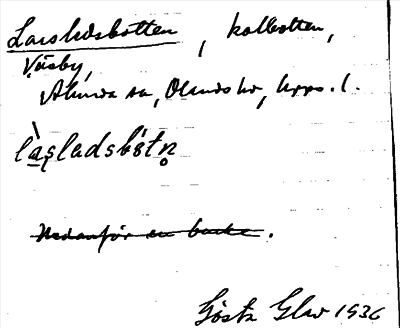 Larsladsbotten, kolbotten,
Väsby,
Almunge sn, Olands hd, Upps. l.
làs̨ladsbòtn̥
Nedanför en backe.
Gösta Glav 1936